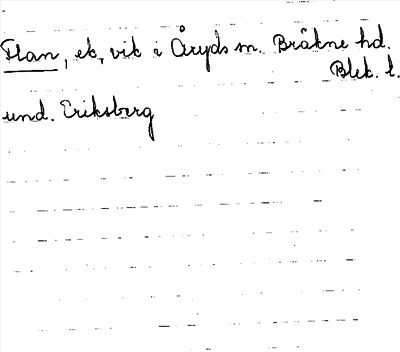 Flan, ek, vik i Åryds sn. Bräkne hd.
Blek. l.
und. Eriksberg